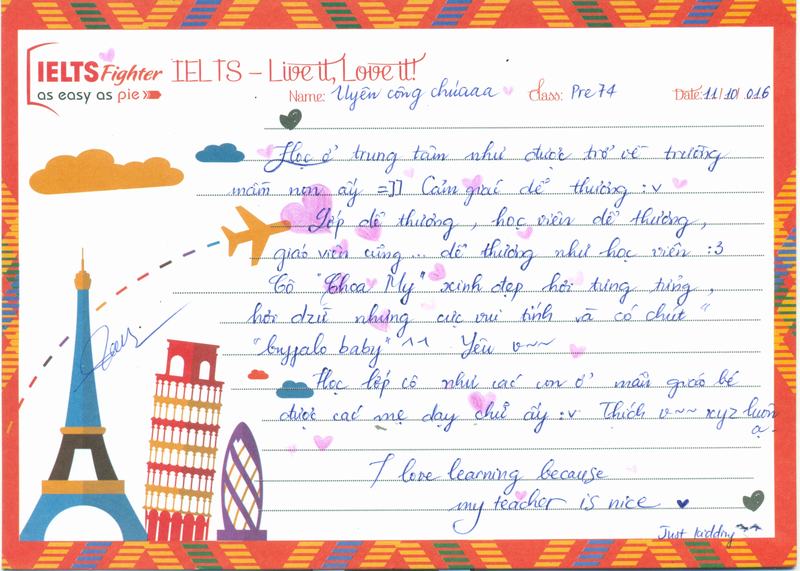 IELTS Fighter
as easy as pie
IELTS – Live it, Love it!
Name: Uyên công chúaaa Class: Pre74 Date: 11/10/016
Học ở trung tâm như được trở về trường
mầm non ấy =]] Cảm giác dễ thương :v
Lớp dễ thương, học viên dễ thương,
giáo viên cũng... dễ thương như học viên :3
Cô "Choa My" xinh đẹp hơi tưng tửng,
hơi dzữ nhưng cực vui tính và có chút "
"buffalo baby" ^^ Yêu v~~
Học lớp cô như các con ở mẫu giáo bé
được các mẹ dạy chữ ấy :v Thích v~~ xyz luôn
ạ.
I love learning because
my teacher is nice
Just kidding ^^